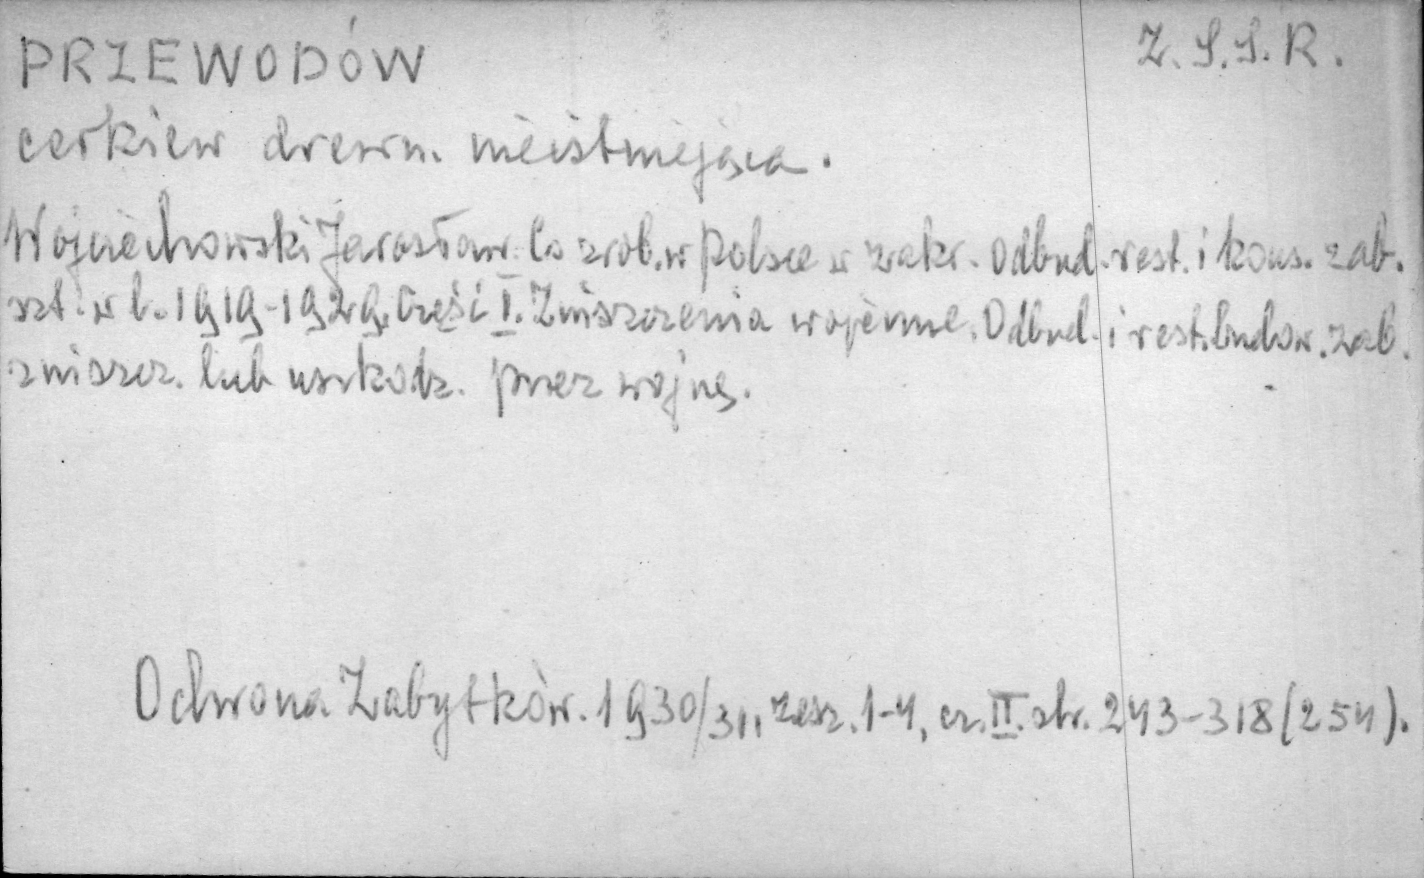 PRZEWODÓW Z.S.S.R.
cerkiew drewn. nieistniejąca.
Wojciechowski Jarosław. Co zrob. w Polsce w zakr. Odbud. rest. i kons. zab.
szt. w l. 1919-1929. Część I. Zniszczenia wojenne. Odbud. i rest. budow. zab.
zniszcz. lub uszkodz. przez wojnę.
Ochrona Zabytków. 1930/31, zesz. 1-4, cz. II. str. 243-318 (254).